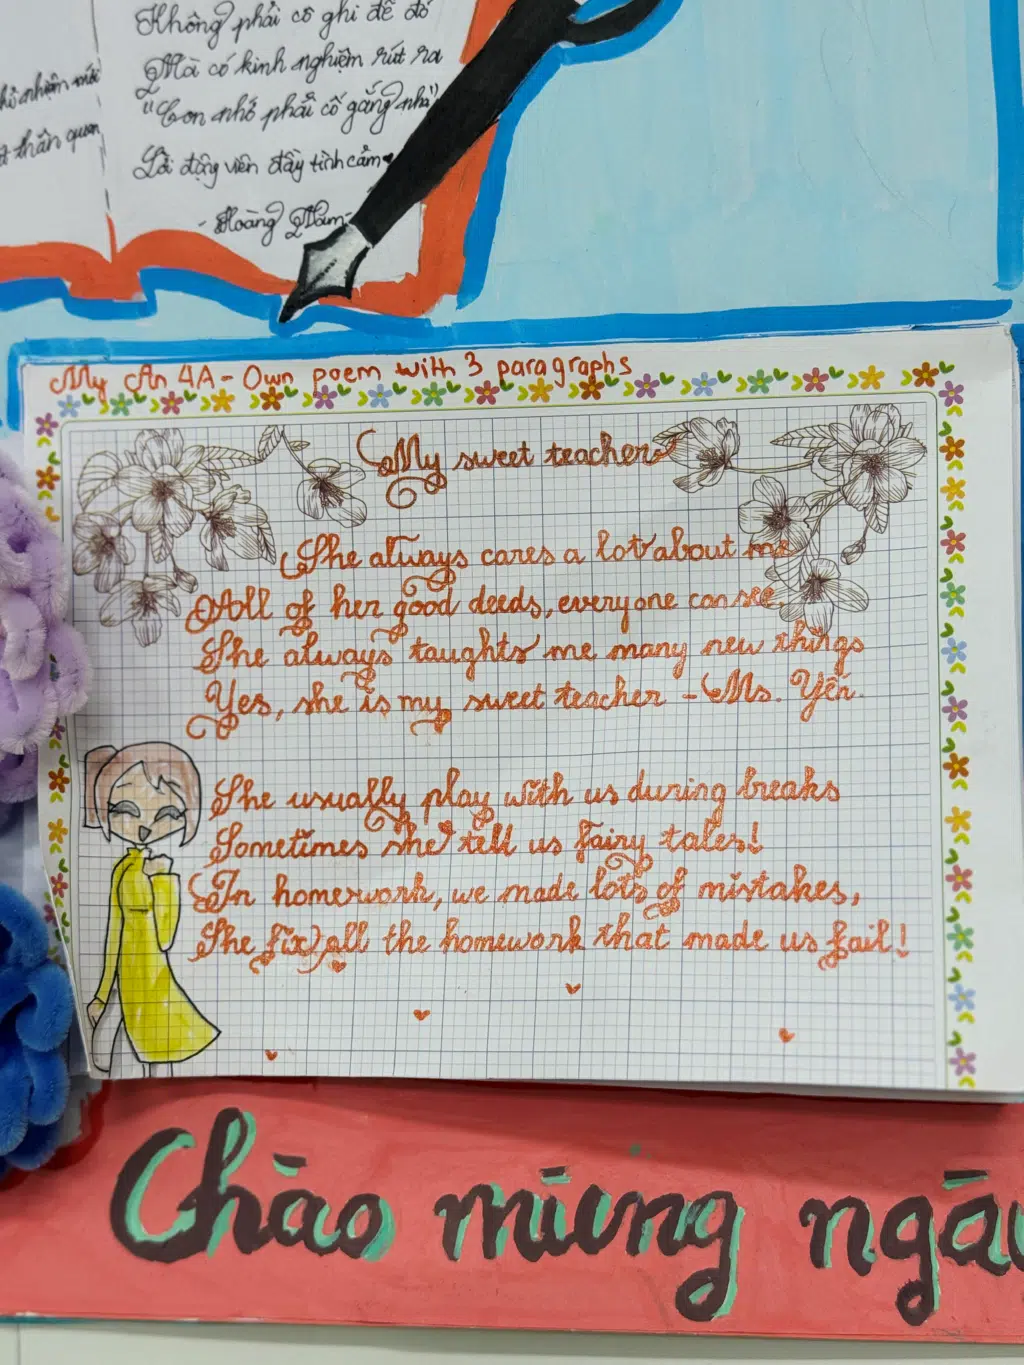 Không phải cô ghi đề đó
Mà có kinh nghiệm rút ra
"Con nhớ phải cố gắng nha"
Lời động viên đầy tình cảm
- Hoàng Nam -
hủ nhiệm mới
thân quen
My An 4A - Own poem with 3 paragraphs
My sweet teacher
She always cares a lot about me
All of her good deeds, everyone can see.
She always taughts me many new things
Yes, she is my sweet teacher - Ms. Yến.
She usually play with us during breaks
Sometimes she tell us fairy tales!
In homework, we made lots of mistakes,
She fix all the homework that made us fail!
Chào mừng ngày